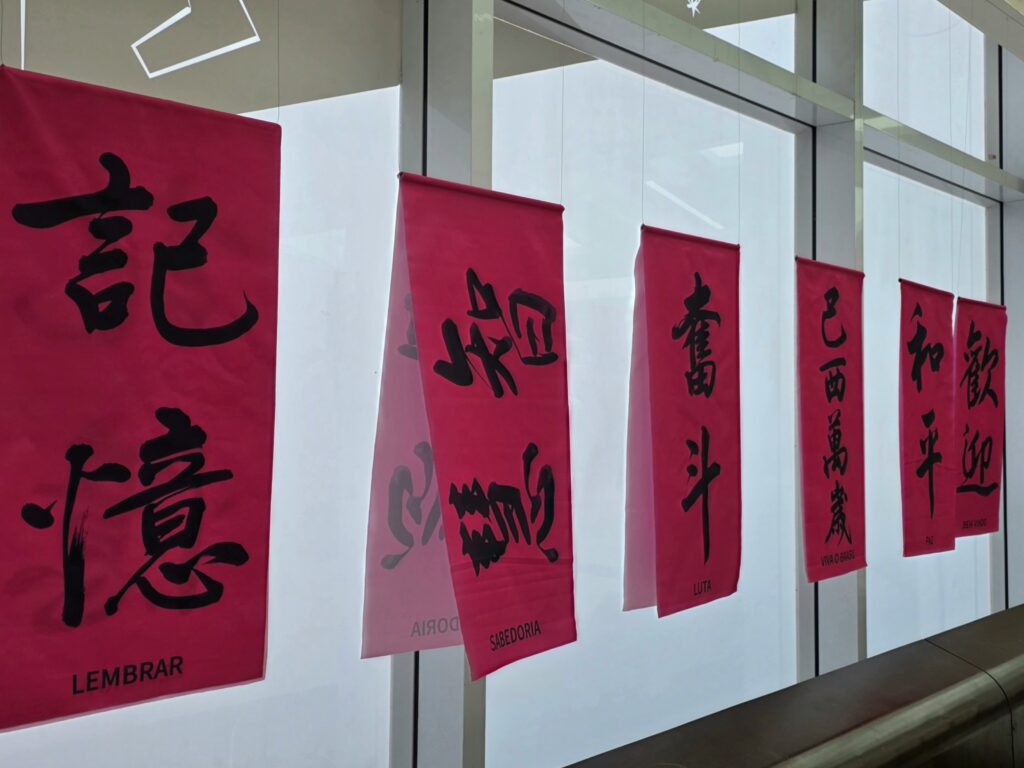 記憶
LEMBRAR
智慧
SABEDORIA
奮斗
LUTA
巴西萬歲
VIVA O BRASIL
和平
PAZ
歡迎
BEM VINDO